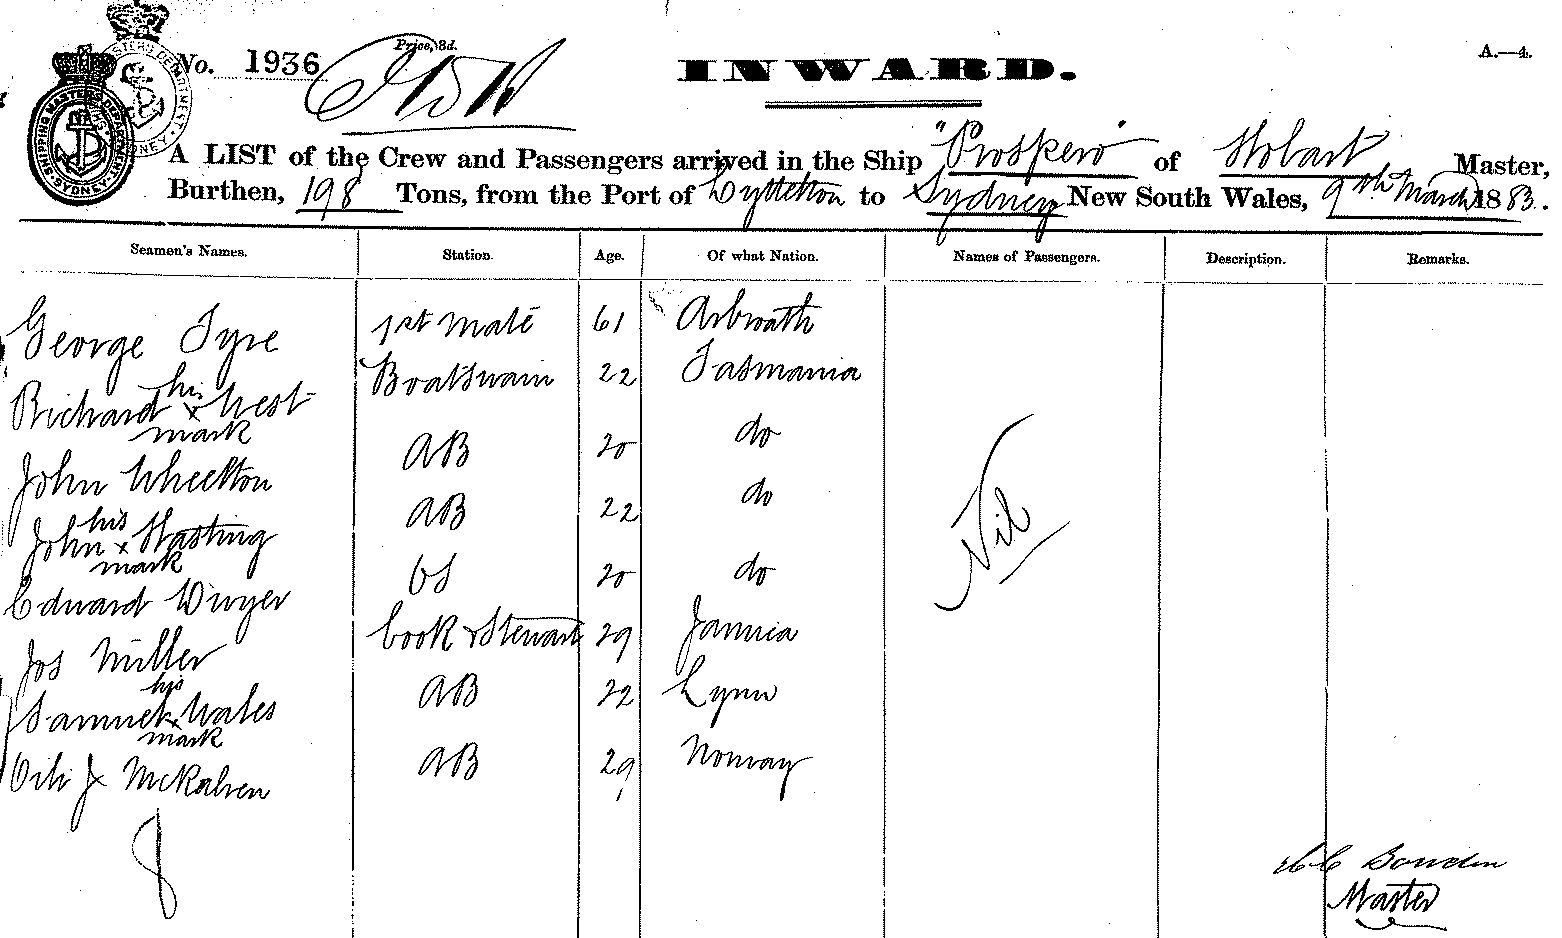 No. 1936
Price, 8d.
INWARD.
A.—4.
SHIPPING MASTERS DEPARTMENT SYDNEY
A LIST of the Crew and Passengers arrived in the Ship "Prospero" of Hobart Master,
Burthen, 198 Tons, from the Port of Lyttelton to Sydney New South Wales, 9th March 1883.
Seamen's Names. Station. Age. Of what Nation. Names of Passengers. Description. Remarks.
George Tyre 1st Mate 61 Arbroath
Richard his x mark West Boatswain 22 Tasmania
John Wheelton AB 20 do
John his x mark Hasting AB 22 do
Edward Dwyer OS 20 do
Jos Miller Cook & Steward 29 Jamica
Samuel his x mark Wales AB 22 Lynn
AB 29 Norway
Nil
8
Bowden
Master